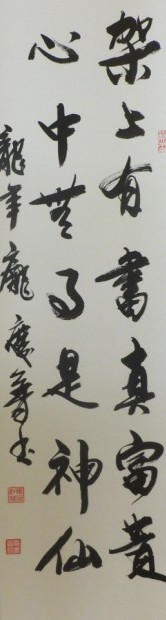 架上有書真富貴
心中無事是神仙
龍年龐書